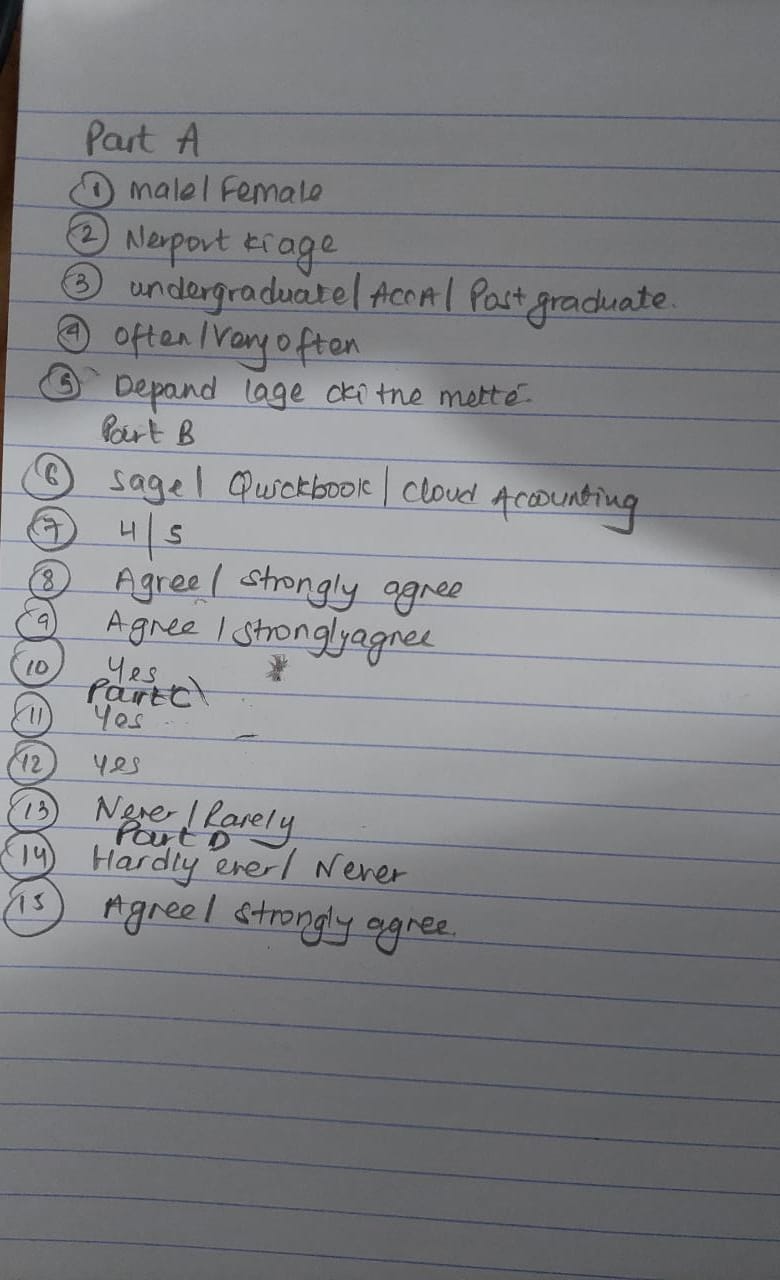 Part A
① male/Female
② Nerport ki age
③ undergraduate/ ACCA/ Post graduate.
④ often/Very often
⑤ Depand lage cki tne metté.
Part B
⑥ Sage/ Quickbook/ Cloud Accounting
⑦ 4/5
⑧ Agree/ strongly agree
⑨ Agree / stronglyagree
⑩ Yes
Part C
⑪ Yes
⑫ yes
⑬ Never / Rarely
Part D
⑭ Hardly ever/ Never
⑮ Agree/ strongly agree.